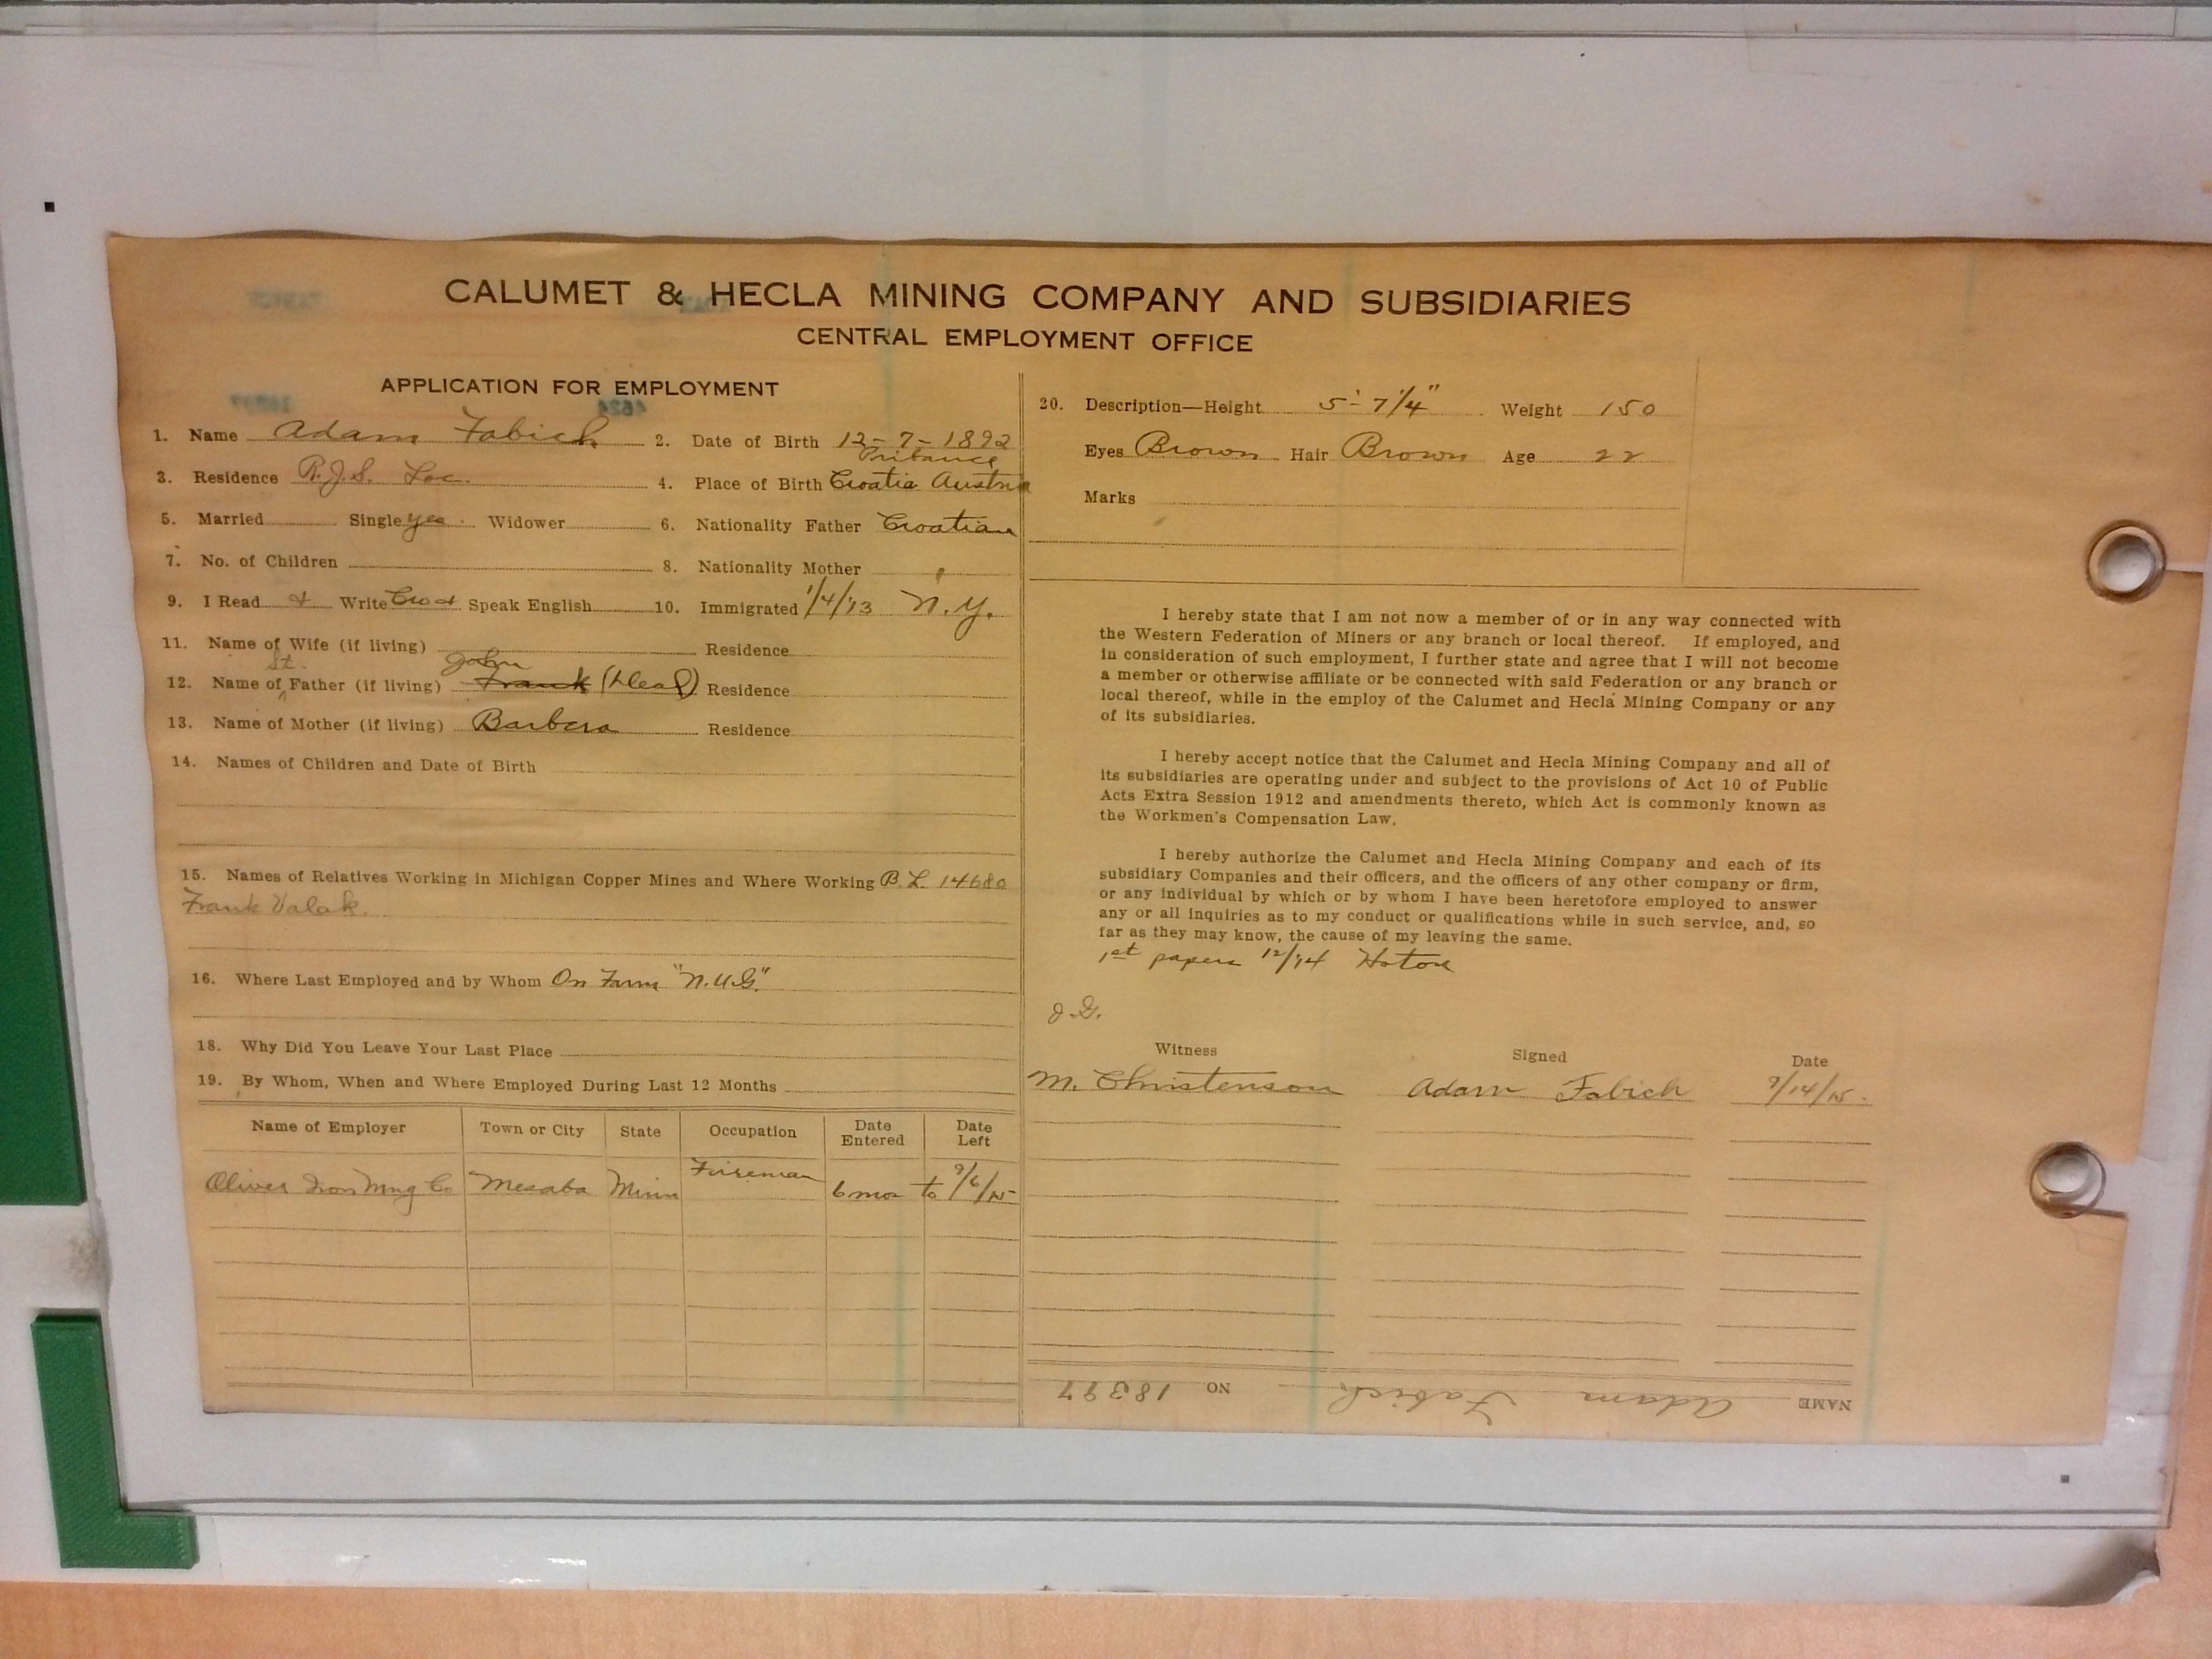 CALUMET & HECLA MINING COMPANY AND SUBSIDIARIES
CENTRAL EMPLOYMENT OFFICE
APPLICATION FOR EMPLOYMENT
1. Name Adam Fabich 2. Date of Birth 12-7-1892
Pribance
3. Residence R.J.S. Loc. 4. Place of Birth Croatia Austria
5. Married Single yes. Widower 6. Nationality Father Croatian
7. No. of Children 8. Nationality Mother "
9. I Read & Write Cro & Speak English 10. Immigrated 1/4/'13 N.Y.
11. Name of Wife (if living) Residence
St. John
12. Name of Father (if living) Frank (Dead) Residence
13. Name of Mother (if living) Barbera Residence
14. Names of Children and Date of Birth
15. Names of Relatives Working in Michigan Copper Mines and Where Working B.L. 14680
Frank Valak.
16. Where Last Employed and by Whom On Farm "N.U.G."
18. Why Did You Leave Your Last Place
19. By Whom, When and Where Employed During Last 12 Months
Name of Employer Town or City State Occupation Date Entered Date Left
Oliver Iron Mng Co Mesaba Minn Fireman 6 mos to 9/6/15
20. Description—Height 5'-7 1/4" Weight 150
Eyes Brown Hair Brown Age 22
Marks
I hereby state that I am not now a member of or in any way connected with
the Western Federation of Miners or any branch or local thereof. If employed, and
in consideration of such employment, I further state and agree that I will not become
a member or otherwise affiliate or be connected with said Federation or any branch or
local thereof, while in the employ of the Calumet and Hecla Mining Company or any
of its subsidiaries.
I hereby accept notice that the Calumet and Hecla Mining Company and all of
its subsidiaries are operating under and subject to the provisions of Act 10 of Public
Acts Extra Session 1912 and amendments thereto, which Act is commonly known as
the Workmen's Compensation Law.
I hereby authorize the Calumet and Hecla Mining Company and each of its
subsidiary Companies and their officers, and the officers of any other company or firm,
or any individual by which or by whom I have been heretofore employed to answer
any or all inquiries as to my conduct or qualifications while in such service, and, so
far as they may know, the cause of my leaving the same.
1st papers 12/'14 Hoton
J.G.
Witness Signed Date
M. Christenson Adam Fabich 9/14/15.
NAME Adam Fabich NO. 18397